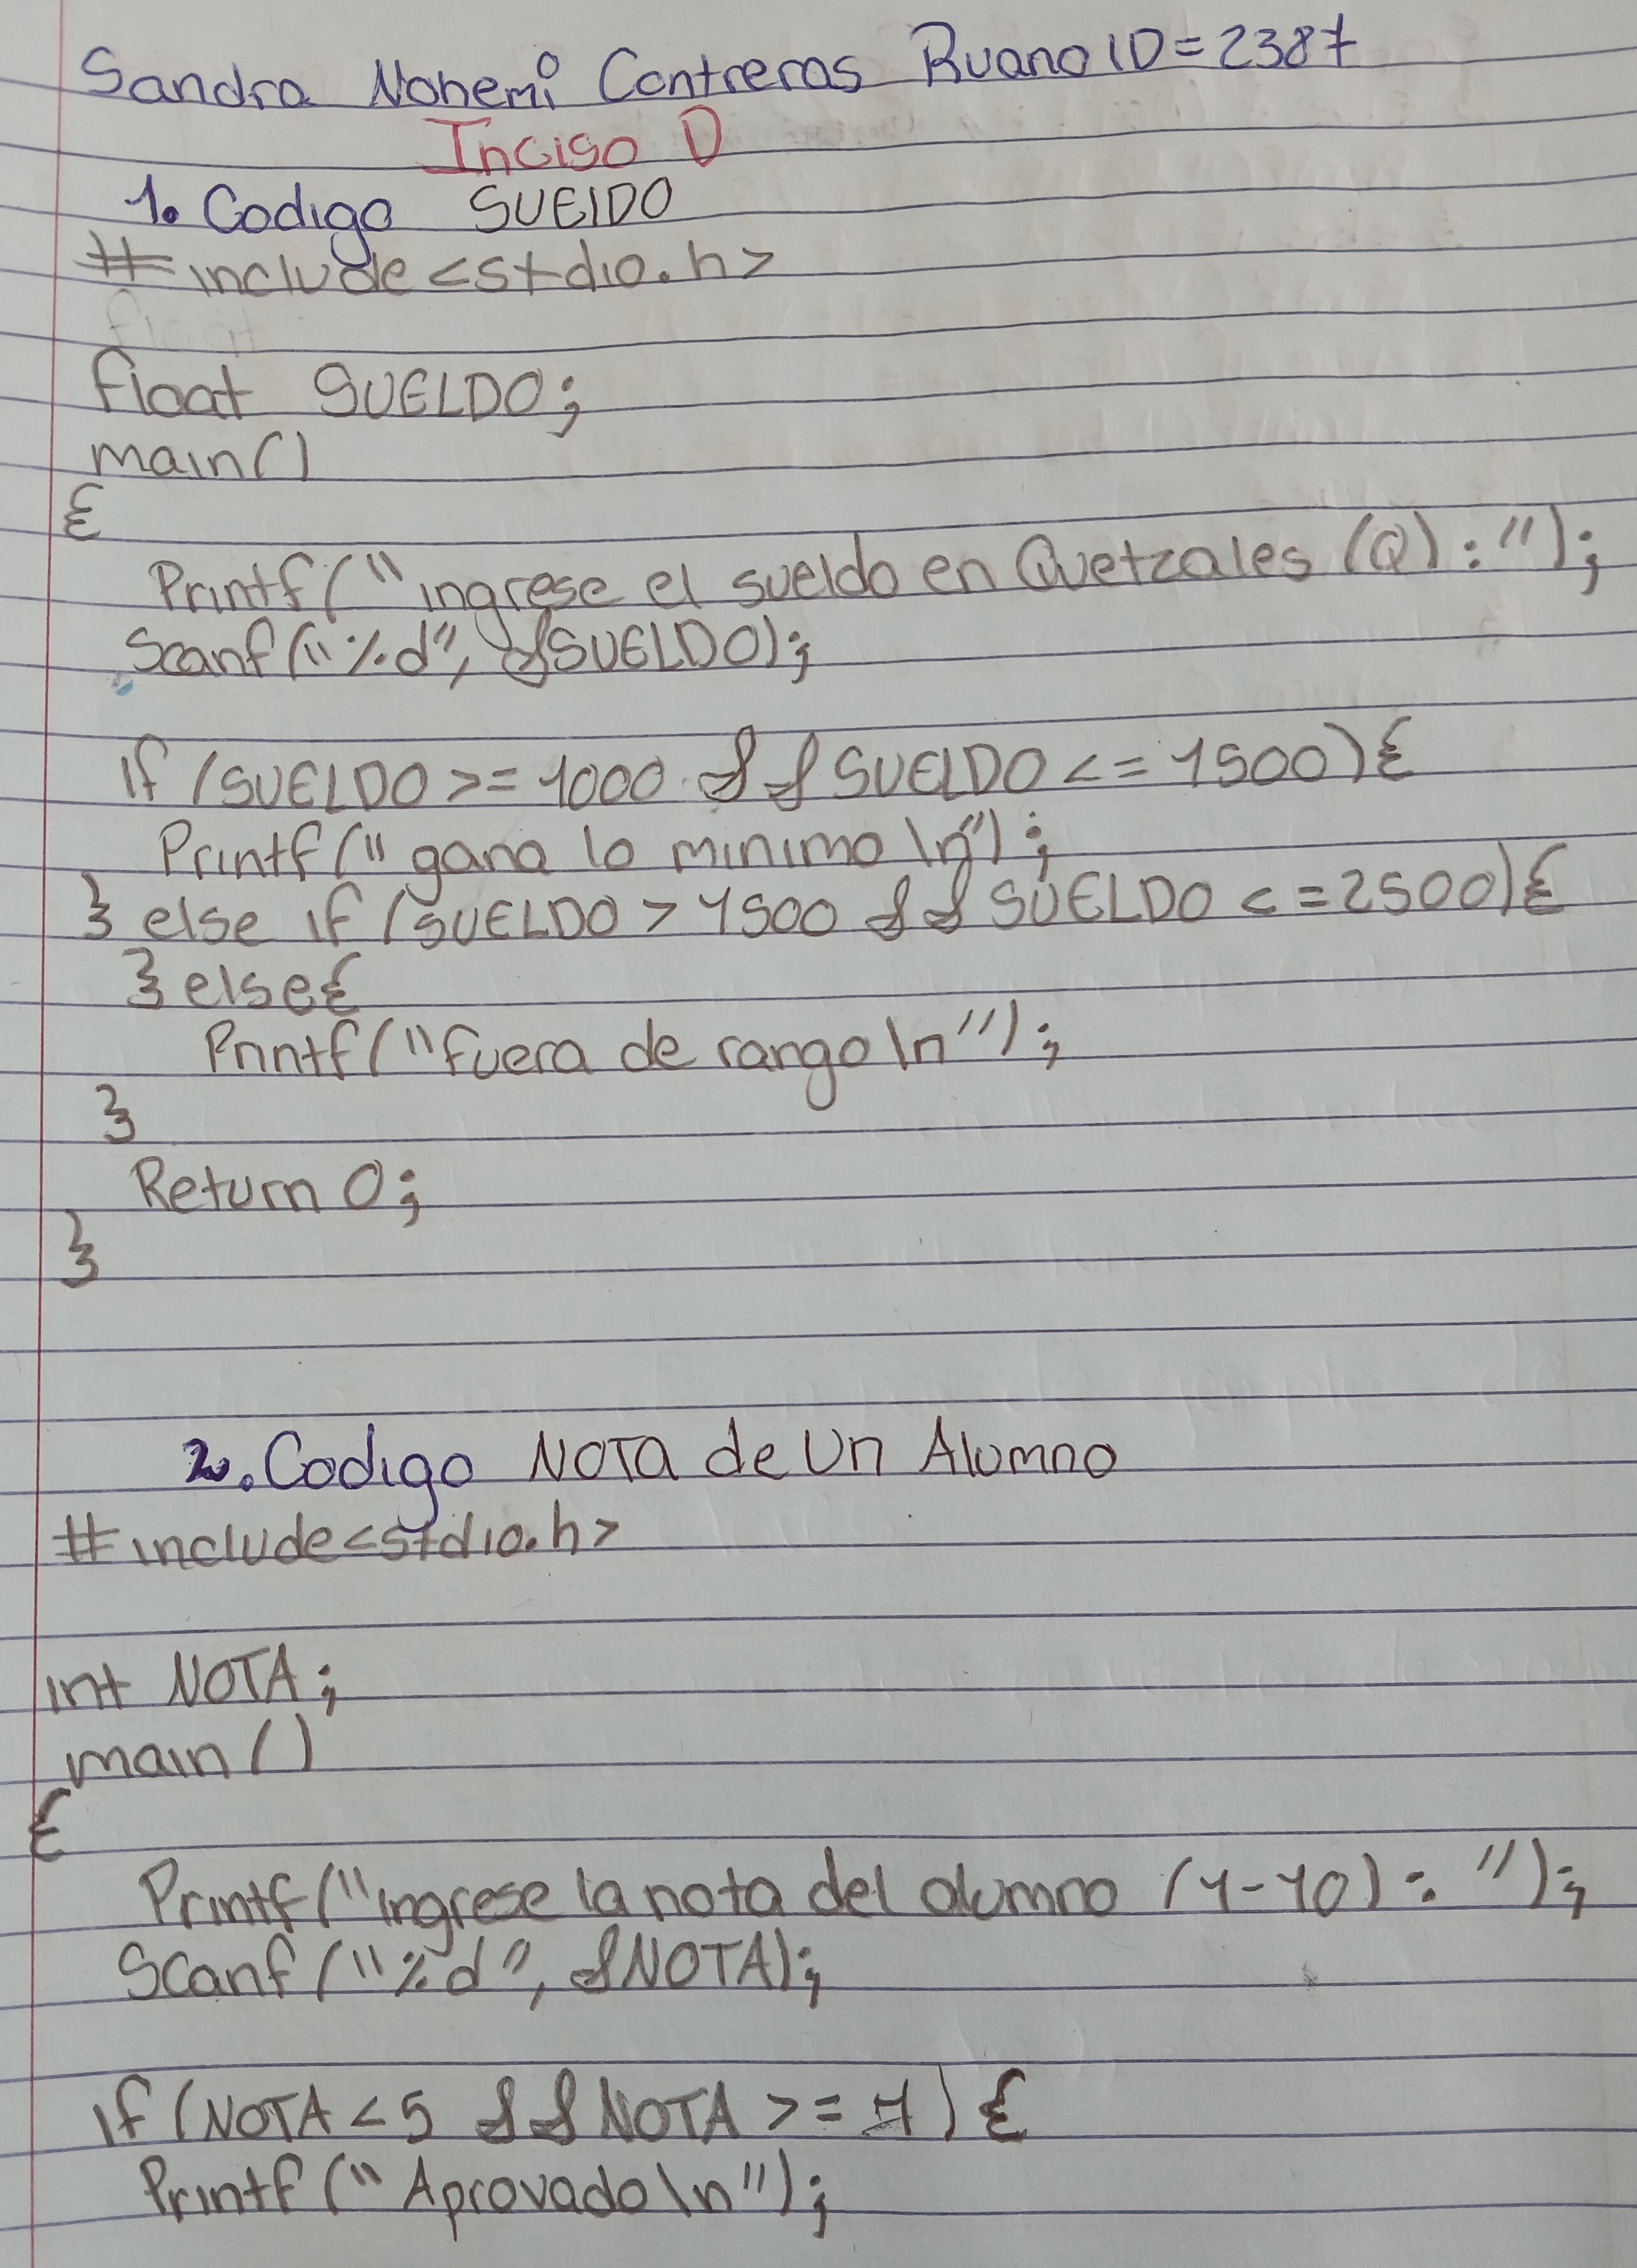 Sandra Nohemi Contreras Ruano ID=2387
Inciso D
1. Codigo SUElDO
#include<stdio.h>
float SUELDO;
main()
{
Printf("ingrese el sueldo en Quetzales (Q):");
Scanf("%d", &SUELDO);
if (SUELDO >= 1000 && SUELDO <= 1500){
Printf("gana lo minimo \n");
} else if (SUELDO > 1500 && SUELDO <= 2500){
} else{
Printf("fuera de rango\n");
}
Return 0;
}
2. Codigo NOTA de Un Alumno
#include<stdio.h>
int NOTA;
main()
{
Printf("ingrese la nota del alumno (1-10): ");
Scanf("%d", &NOTA);
if (NOTA < 5 && NOTA >= 1) {
Printf("Aprovado\n");